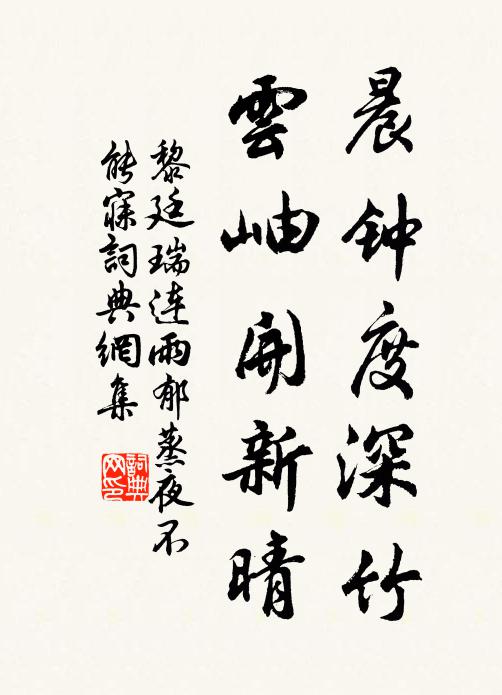 晨钟度深竹
雲岫開新晴
黎廷瑞連雨郁蒸夜不
能寐詞典網集
詞典
网印